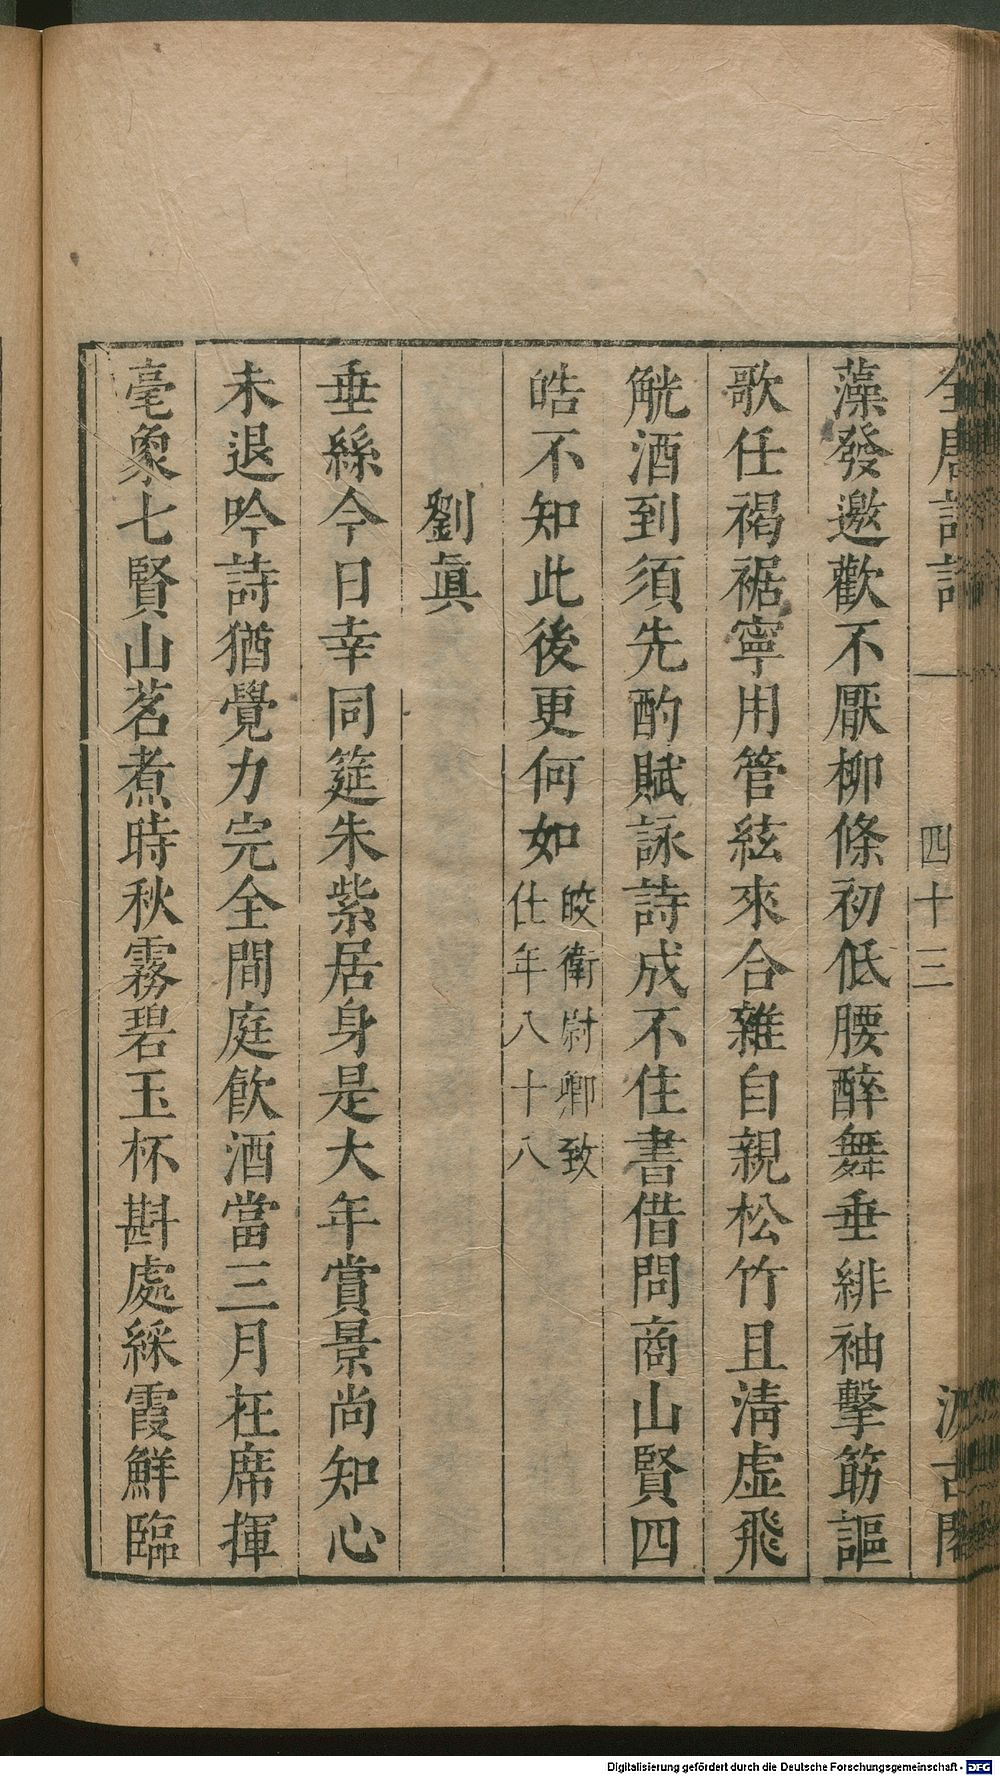 全唐詩話 四十三 汲古閣
藻發邀歡不厭柳條初低腰醉舞垂緋袖擊筯謳
歌任褐裾寧用管絃來合雜自親松竹且淸虛飛
觥酒到須先酌賦詠詩成不住書借問商山賢四
皓不知此後更何如皎衛尉卿致
仕年八十八
劉眞
垂絲今日幸同筵朱紫居身是大年賞景尚知心
未退吟詩猶覺力完全閒庭飮酒當三月在席揮
毫象七賢山茗煮時秋霧碧玉杯斟處綵霞鮮臨
Digitalisierung gefördert durch die Deutsche Forschungsgemeinschaft - DFG